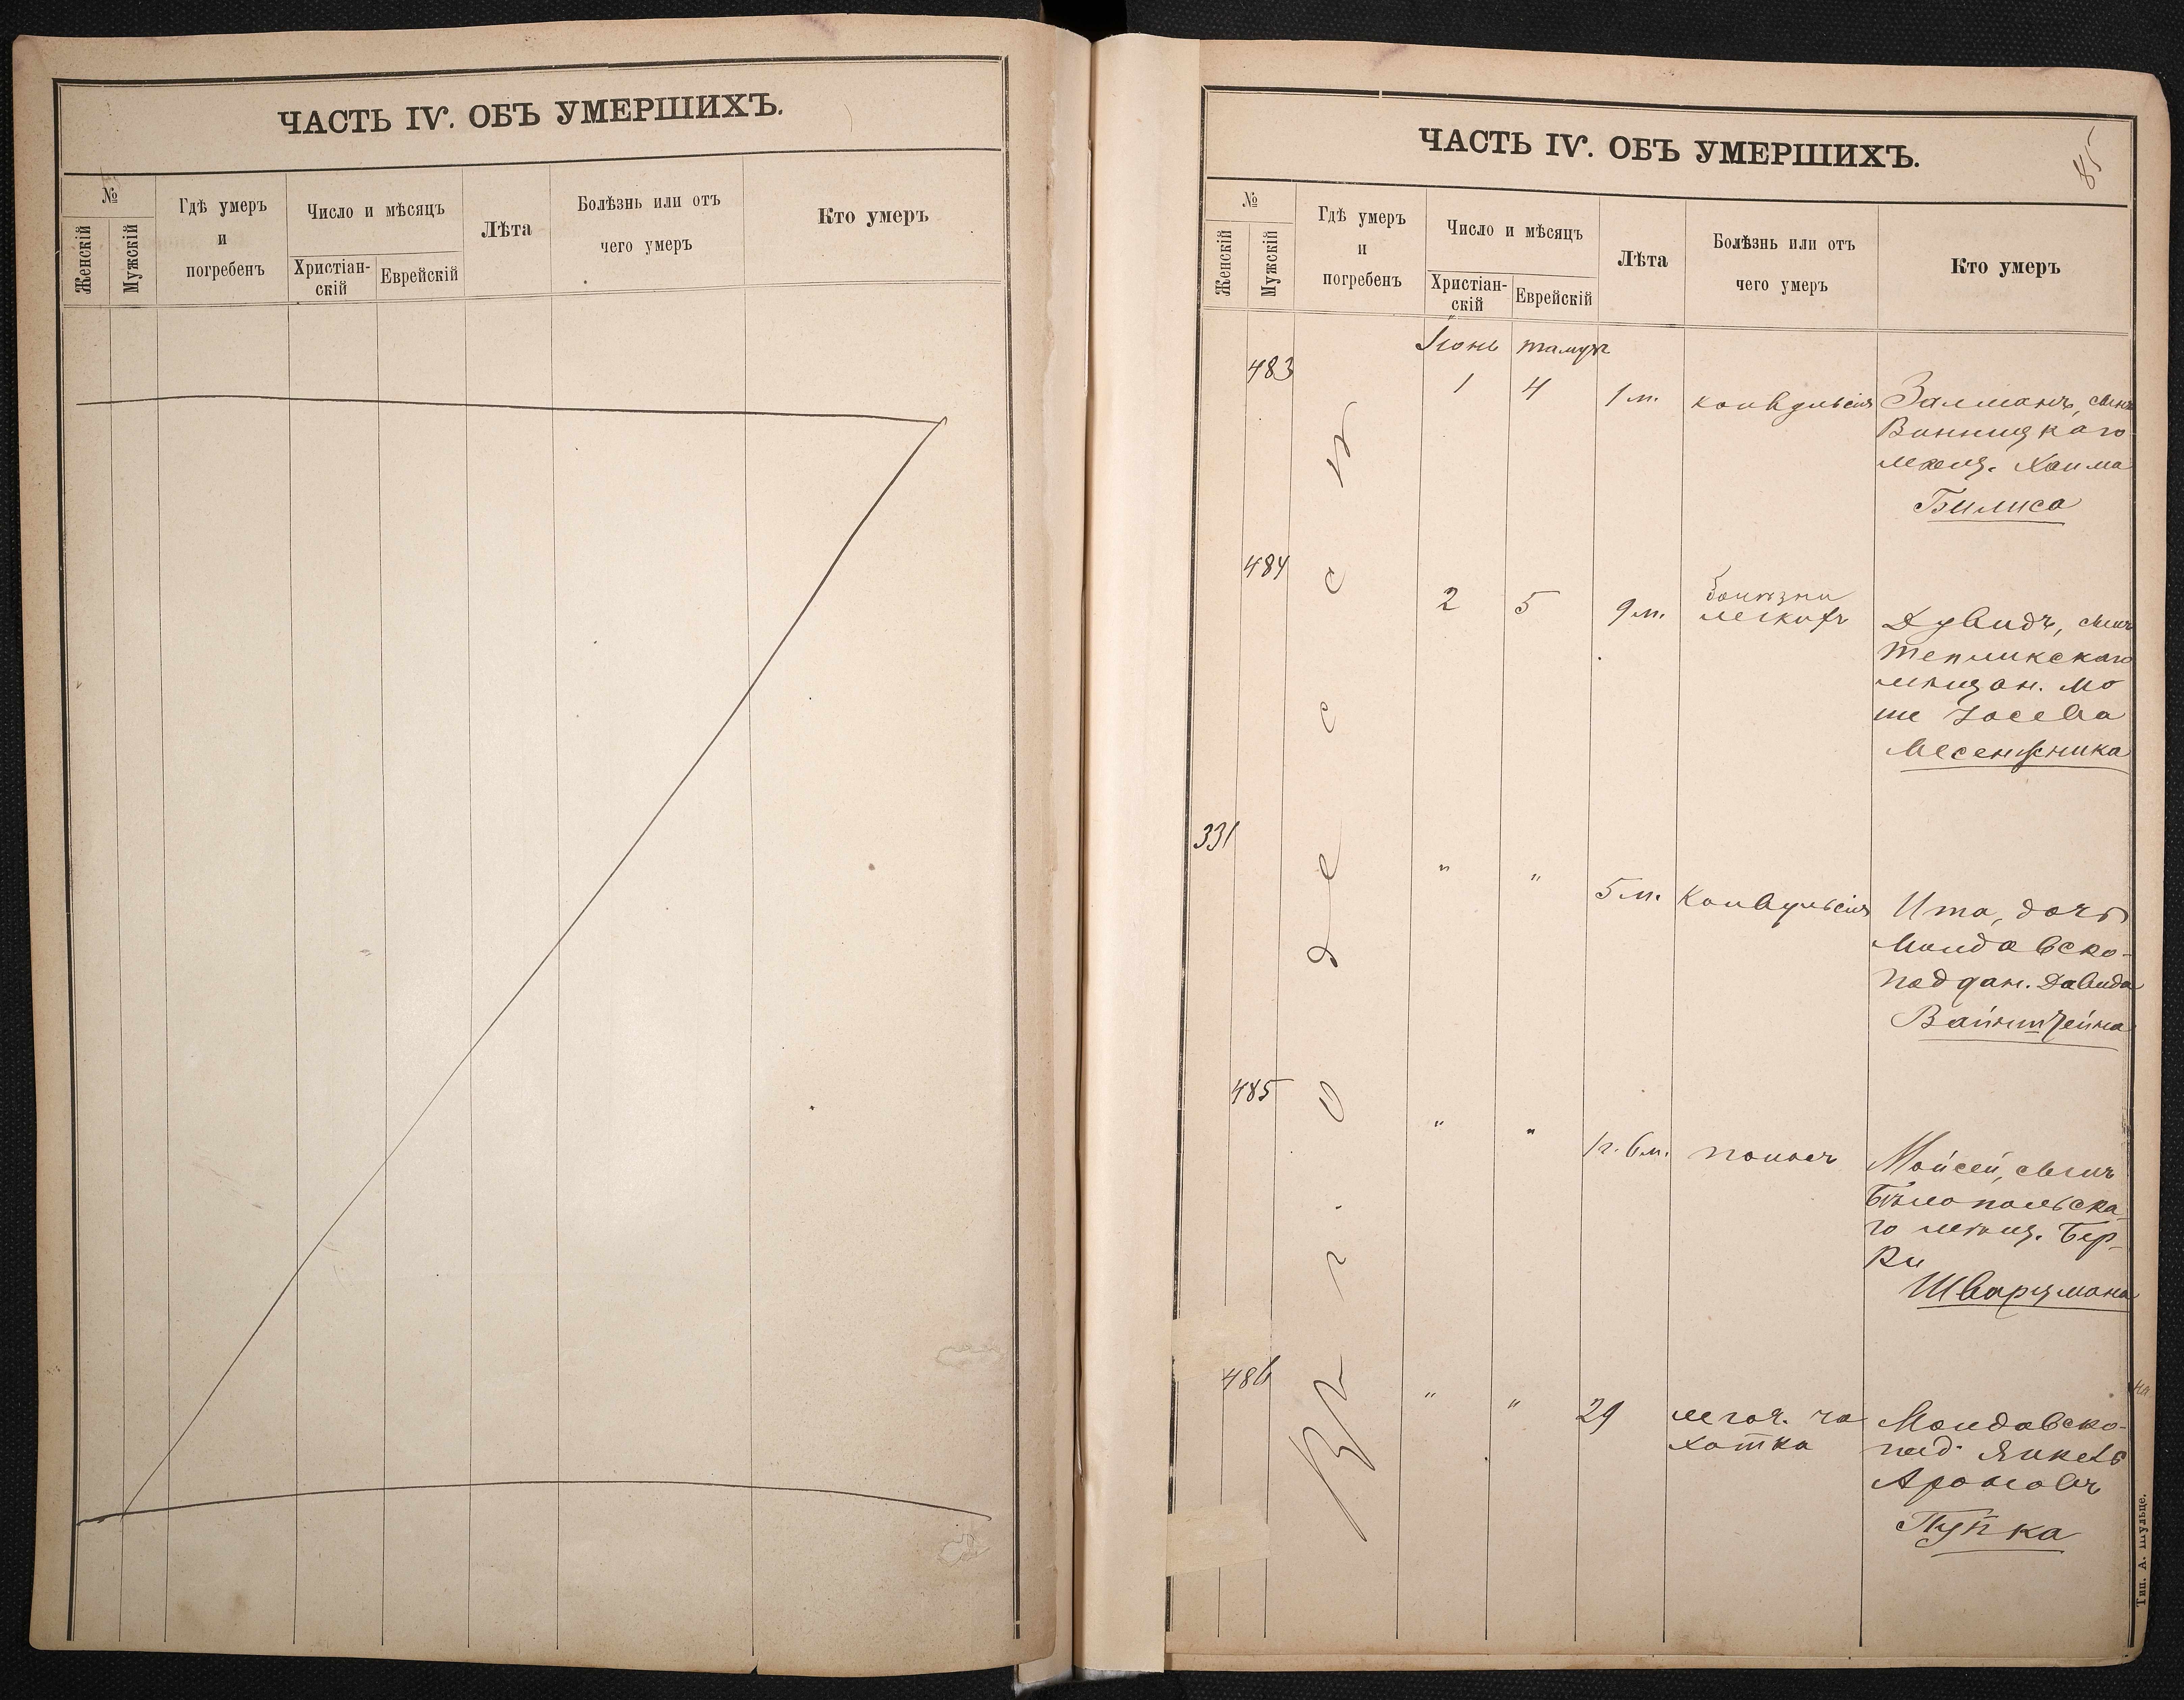 ЧАСТЬ IV. ОБЪ УМЕРШИХЪ.
№
Женскій
Мужскій
Гдѣ умеръ
и
погребенъ
Число и мѣсяцъ
Христіан-
скій
Еврейскій
Лѣта
Болѣзнь или отъ
чего умеръ
Кто умеръ
ЧАСТЬ IV. ОБЪ УМЕРШИХЪ.
85
№
Женскій
Мужскій
Гдѣ умеръ
и
погребенъ
Число и мѣсяцъ
Христіан-
скій
Еврейскій
Лѣта
Болѣзнь или отъ
чего умеръ
Кто умеръ
Въ г. Одессѣ
Іюнь тамузъ
483 1 4 1 м. конвульсія Залманъ, сынъ
Винницкаго
мѣщ. Хаима
Билиса
484 2 5 9 м. болѣзни
легкихъ
Дувидъ, сынъ
Тепликскаго
мѣщан. Мо
ше Іосева
331 " " 5 м. Конвульсія Ита, дочь
Молдавско-
поддан. Давида
Вайнштейна
485 " " 1 г. 6 м. поносъ Мойсей, сынъ
Бѣлопольска
го мѣщ. Бер-
ки
Шварцмана
486 " " 29 легоч. ча
хотка
Молдавско-
под. Янкель
Ароновъ
Тип. А. Шульце.